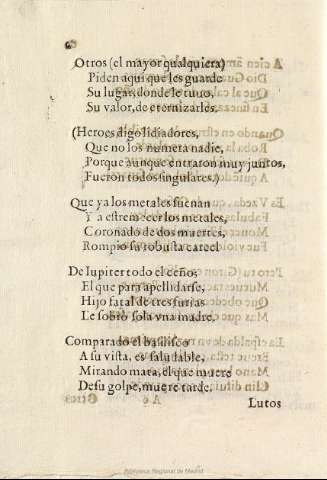 Otros (el mayor qualquiera)
Piden aqui que les guarde
Su lugar, donde le tuuo,
Su valor, de eternizarles.
(Heroes digo lidiadores,
Que no los numera nadie,
Porque aunque entraron muy juntos,
Fueron todos singulares.)
Que ya los metales suenan
Y a estremecer los metales,
Coronado de dos muertes,
Rompio su robusta carcel
De Iupiter todo el ceño,
El que para apellidarse,
Hijo fatal de tres furias
Le sobrò sola vna madre.
Comparado el basilisco
A su vista, es saludable,
Mirando mata, el que muere
De su golpe, muere tarde.
Lutos
Biblioteca Regional de Madrid